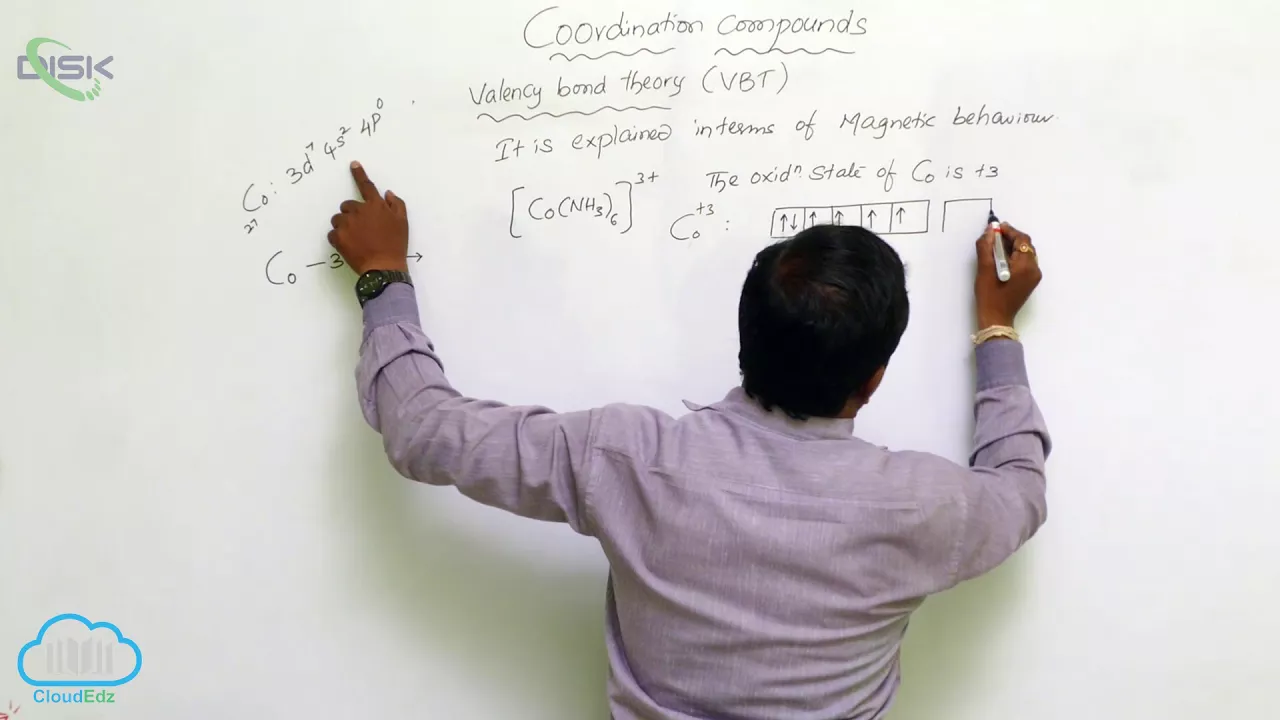 DISK
Coordination Compounds
Valency bond theory (VBT)
It is explained interms of Magnetic behaviour.
Co: 3d⁷ 4s² 4p⁰
27
[Co(NH₃)₆]³⁺
The oxidⁿ State of Co is +3
Co⁺³ : ↑↓ ↑ ↑ ↑ ↑
Co – 3 →
CloudEdz